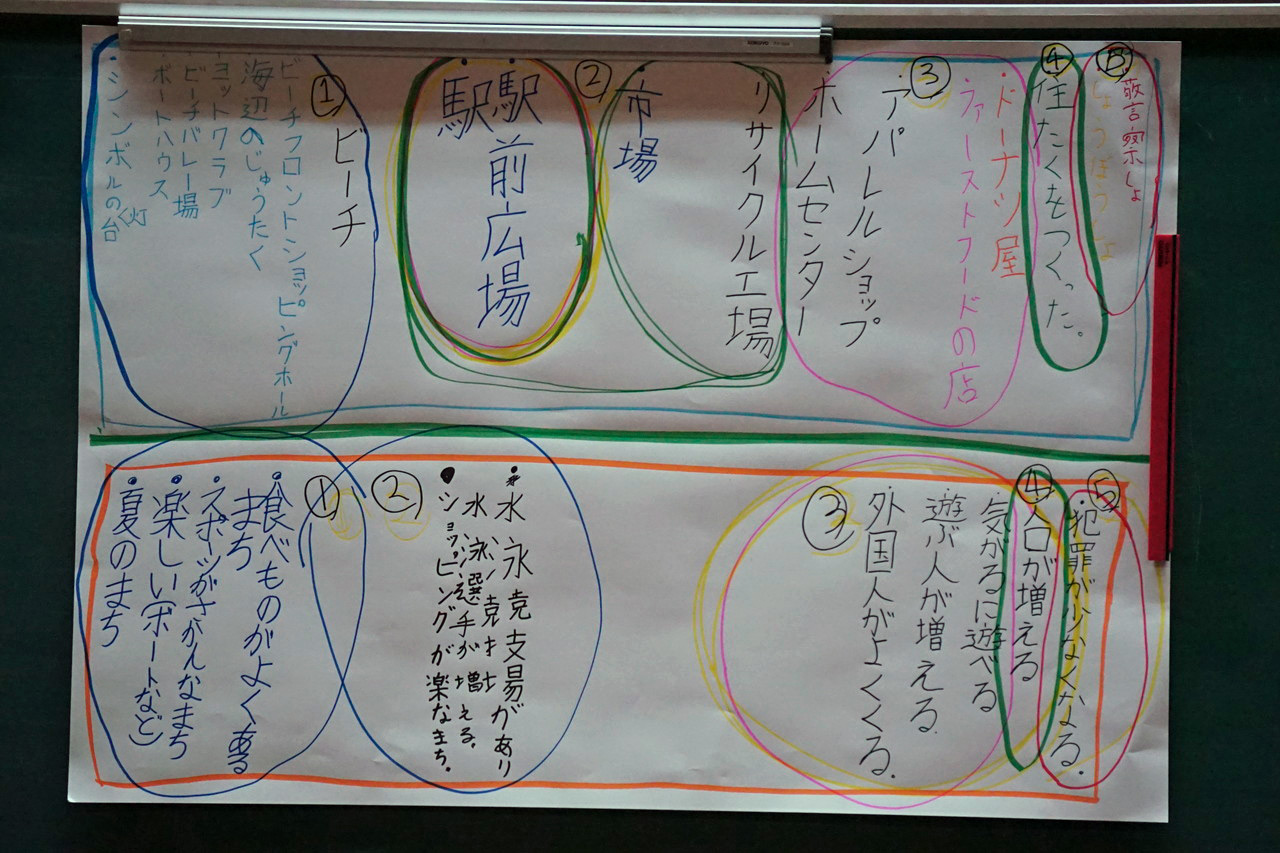 ⑤
警察しょ
しょうぼうしょ
④
住たくをつくった。
・ドーナツ屋
ファーストフードの店
③
・アパレルショップ
ホームセンター
リサイクル工場
・市場
②
・駅前広場
駅
①ビーチ
ビーチフロントショッピングホール
海辺のじゅうたく
・ヨットクラブ
・ビーチバレー場
・ボートハウス
・シンボルの灯台
⑤
・犯罪が少なくなる。
④
人口が増える
・気がるに遊べる
遊ぶ人が増える。
外国人がよくくる。
③
・水泳競技場があり
水泳選手が増える。
・ショッピングが楽なまち。
②
①
・食べものがよくある
まち
・スポーツがさかんなまち
・楽しい(ボートなど)
・夏のまち